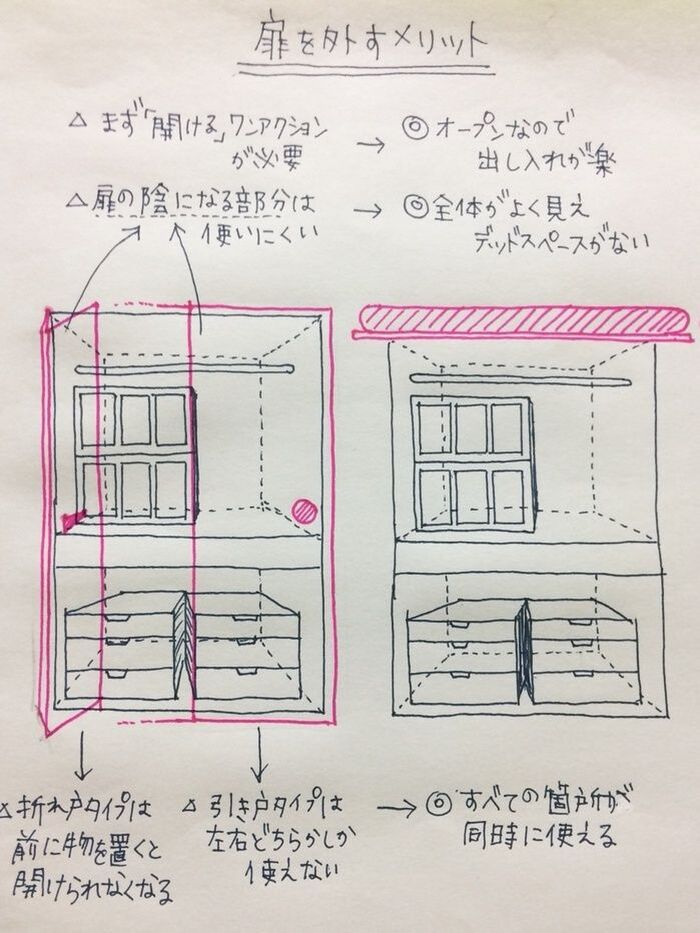 扉を外すメリット
△ まず「開ける」ワンアクション
が必要
→ ◎ オープンなので
出し入れが楽
△ 扉の陰になる部分は
使いにくい
→ ◎ 全体がよく見え
デッドスペースがない
△ 折れ戸タイプは
前に物を置くと
開けられなくなる
△ 引き戸タイプは
左右どちらかしか
使えない
→ ◎ すべての箇所が
同時に使える